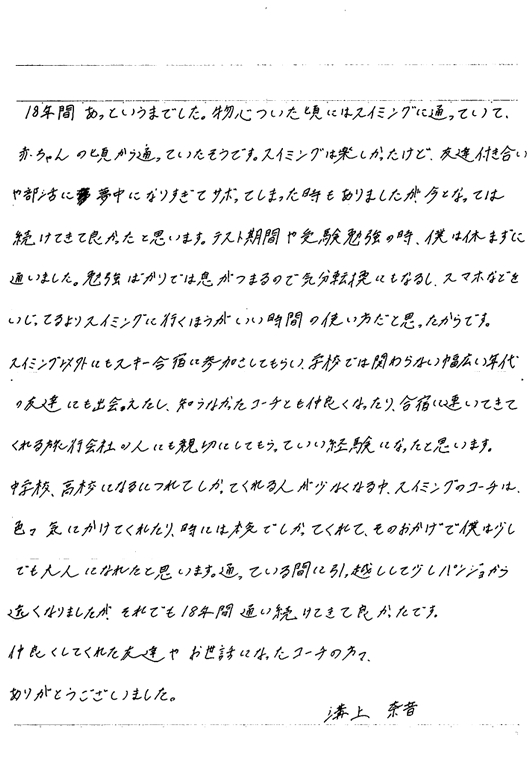 18年間 あっというまでした。物心ついた頃にはスイミングに通っていて、
赤ちゃんの頃から通っていたそうです。スイミングは楽しかったけど、友達付き合い
や部活に夢中になりすぎてサボってしまった時もありましたが今となっては
続けてきて良かったと思います。テスト期間や受験勉強の時、僕は休まずに
通いました。勉強ばかりでは息がつまるので気分転換にもなるし、スマホなどを
いじってるよりスイミングに行くほうがいい時間の使い方だと思ったからです。
スイミング以外にもスキー合宿に参加さしてもらい、学校では関わらない幅広い年代
の友達にも出会えたし、知らなかったコーチとも仲良くなったり、合宿に連いてきて
くれる旅行会社の人にも親切にしてもらっていい経験になったと思います。
中学校、高校になるにつれてしかってくれる人が少なくなる中、スイミングのコーチは、
色々気にかけてくれたり、時には本気でしかってくれて、そのおかげで僕は少し
でも大人になれたと思います。通っている間に引っ越しして少しパンジョから
遠くなりましたが それでも18年間通い続けてきて良かったです。
仲良くしてくれた友達や お世話になったコーチの方々、
ありがとうございました。
溝上 奈音